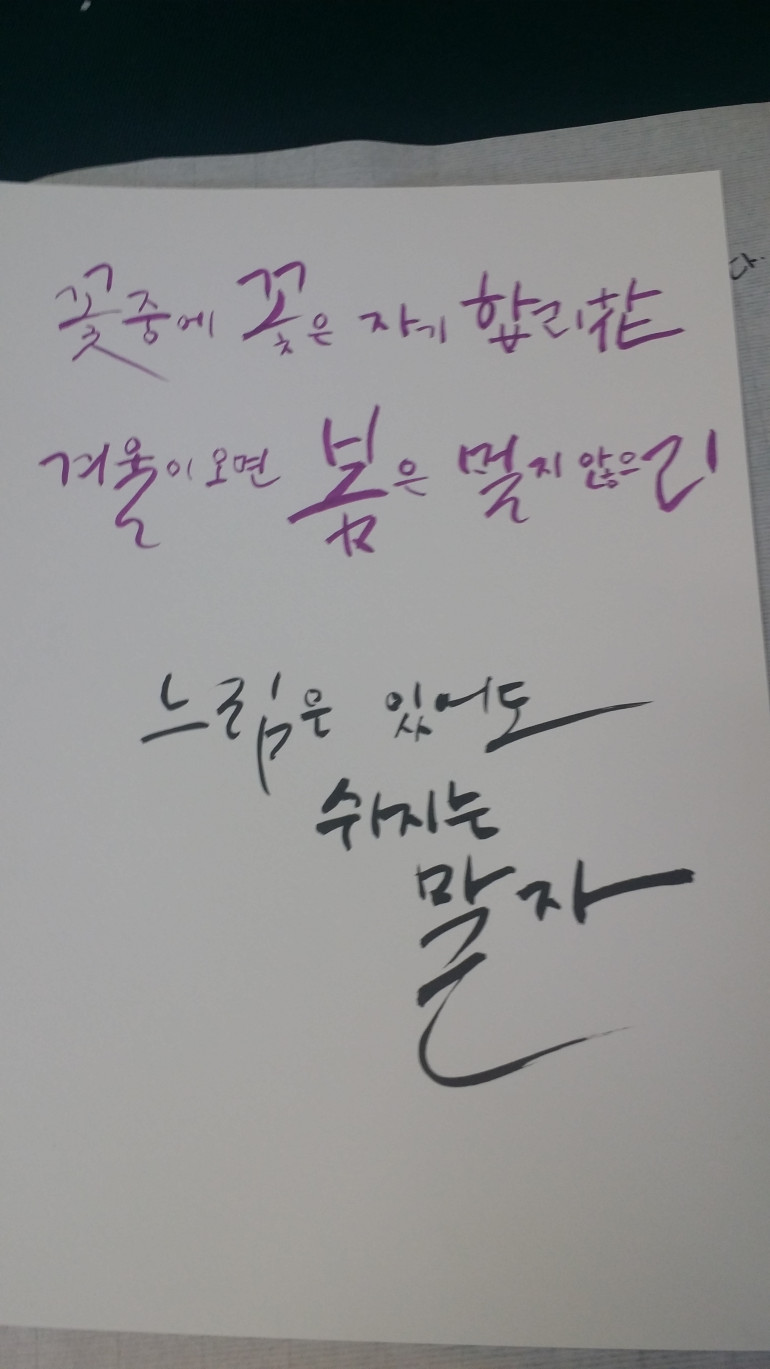 꽃중에 꽃은 자기 합리화
겨울이오면 봄은 멀지않으리
느림은 있어도
쉬지는
말자
다.